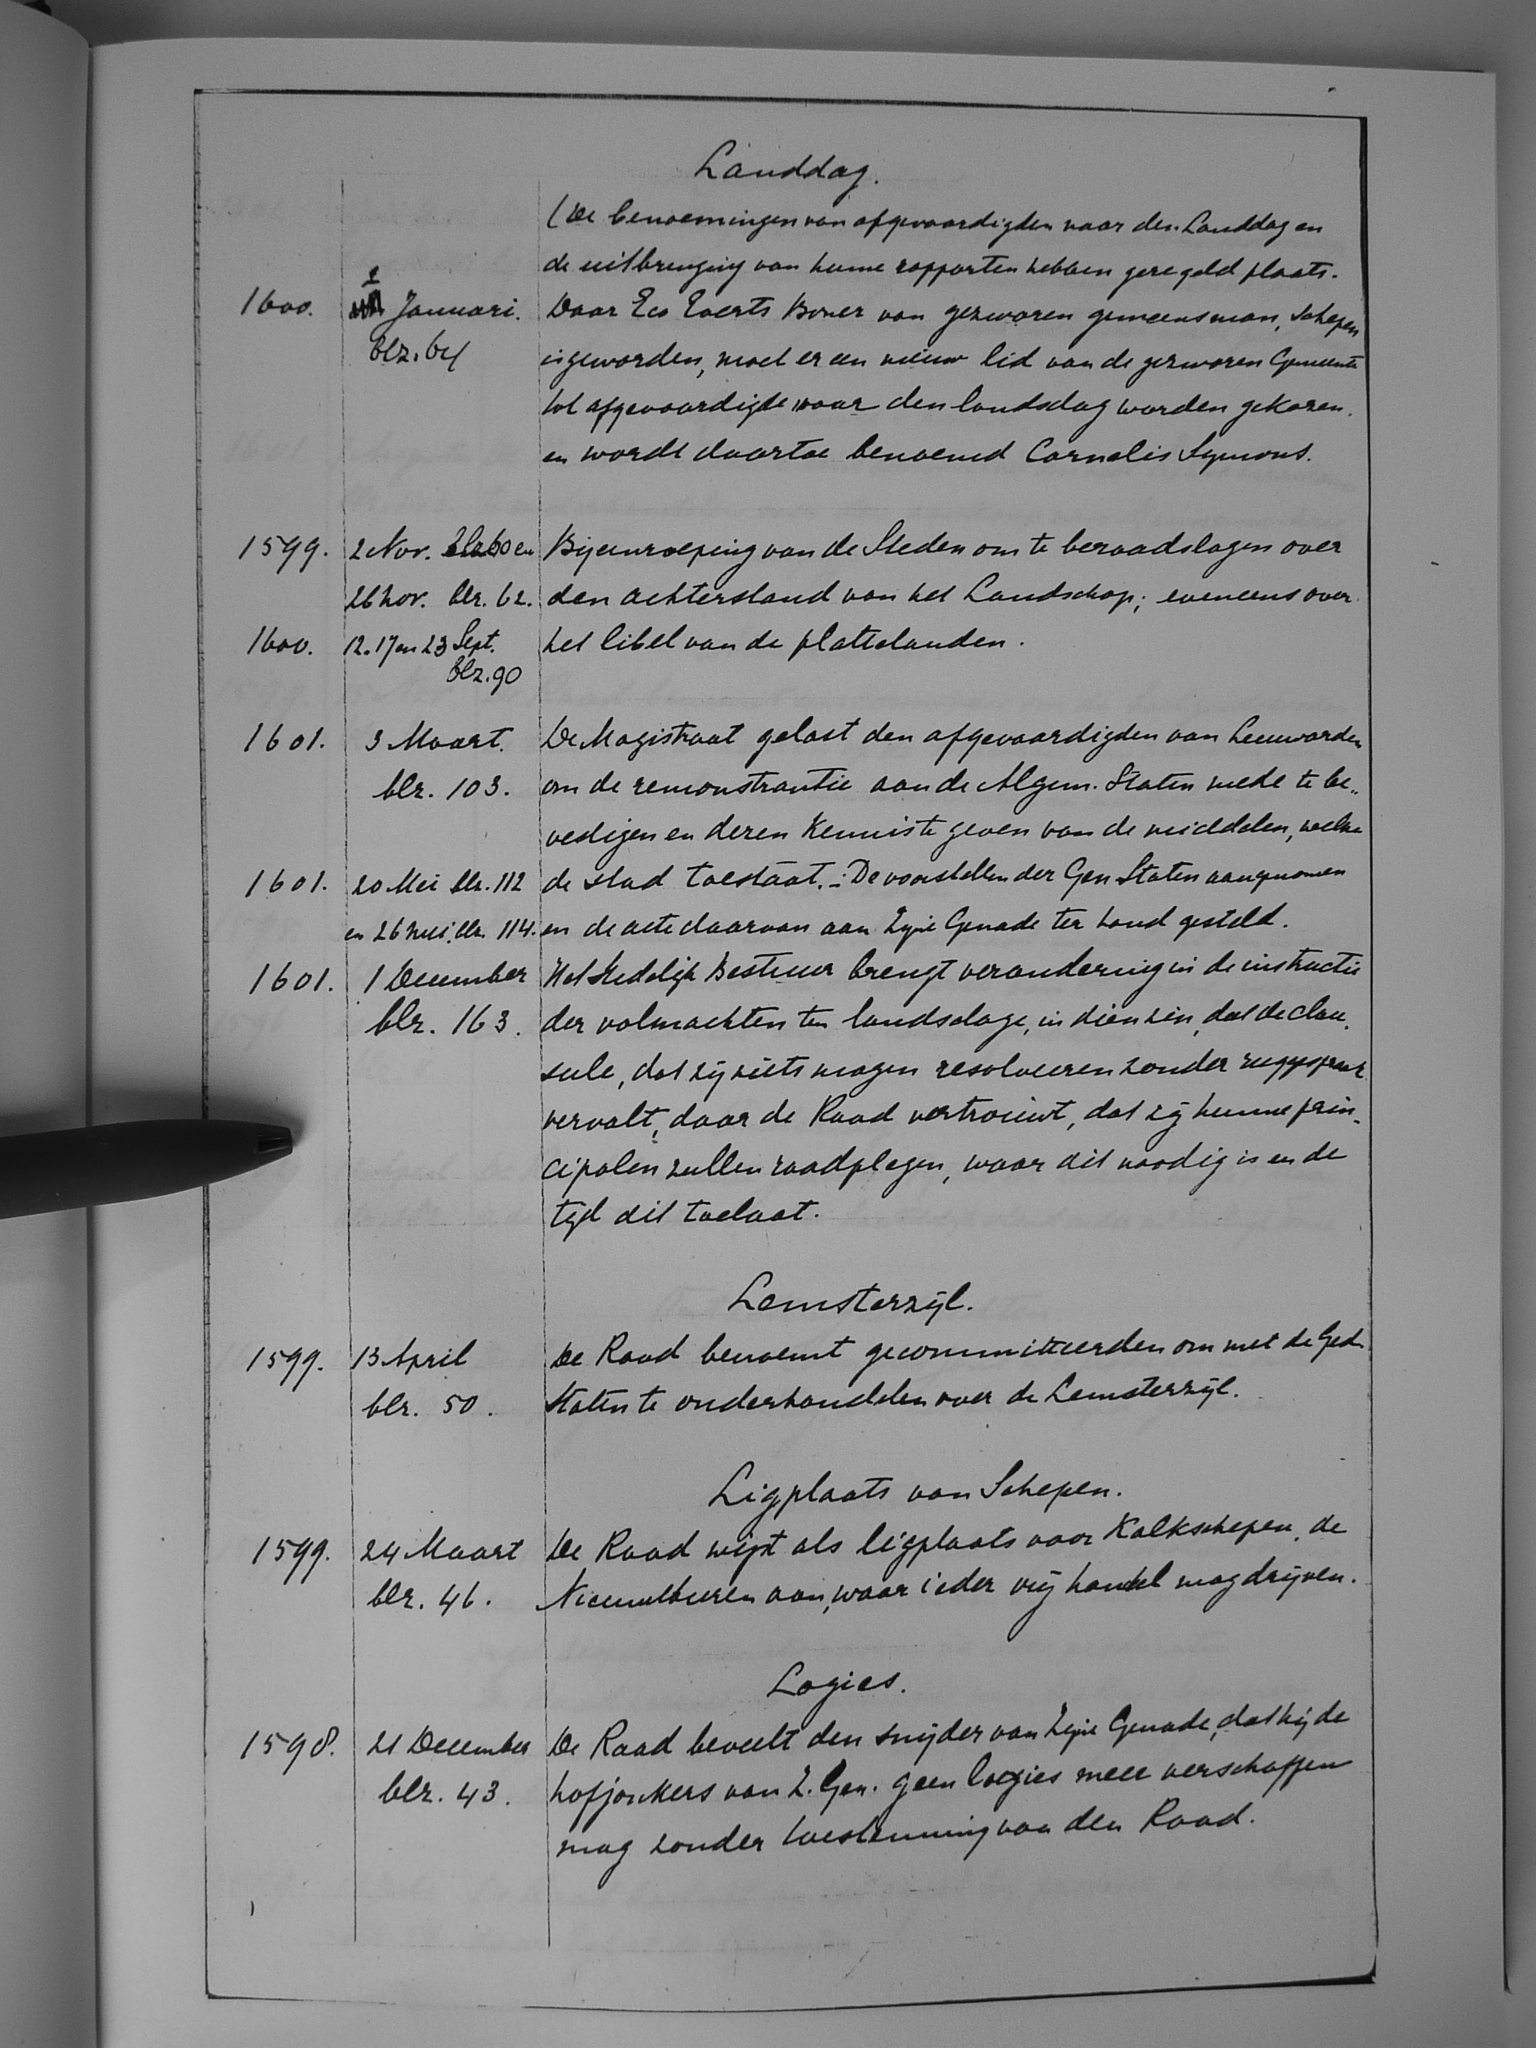 Landdag.
(De benoemingen van afgevaardigden naar den Landdag en
de uitbrenging van hunne rapporten hebben geregeld plaats.
1600. 1 Januari. Daar Eco Everts Boner van gezworen gemeensman, Schepen
blz. 64 is geworden, moet er een nieuw lid van de gezworen Gemeente
tot afgevaardigde naar den landsdag worden gekozen.
en wordt daartoe benoemd Cornelis Symons.
1599. 2 Nov. 60 en Bijeenroeping van de Steden om te beraadslagen over
26 Nov. blz. 62. den achterstand van het Landschap; eveneens over
1600. 12. 17 en 23 Sept. het libel van de plattelanden.
blz. 90
1601. 3 Maart. De Magistraat gelast den afgevaardigden van Leeuwarden
blz. 103. om de remonstrantie aan de Algem. Staten mede te be„
vestigen en deren kennis te geven van de middelen, welke
1601. 20 Mei blz. 112 de stad toestaat. – De voorstellen der Gen Staten aangenomen
en 26 Mei, blz. 114. en de acte daarvan aan Zijne Genade ter hand gesteld.
1601. 1 December Het Stedelijk Bestuur brengt verandering in de instructie
blz. 163. der volmachten ten landsdage, in dien zin, dat de clau„
sule, dat zij niets mogen resolveeren zonder ruggespraak
vervalt, daar de Raad vertrouwt, dat zij hunne prin„
cipalen zullen raadplegen, waar dit noodig is en de
tijd dit toelaat.
Lemsterzijl.
1599. 13 April De Raad benoemt gecommitteerden om met de Ged.
blz. 50. Staten te onderhandelen over de Lemsterzijl.
Ligplaats van Schepen.
1599. 24 Maart De Raad wijst als ligplaats voor Kalkschepen, de
blz. 46. Nieuweburen aan, waar ieder vrij handel mag drijven.
Logies.
1598. 21 December De Raad beveelt den snijder van Zijne Genade, dat hij de
blz. 43. hofjonkers van Z. Gen. geen logies meer verschaffen
mag zonder toestemming van den Raad.